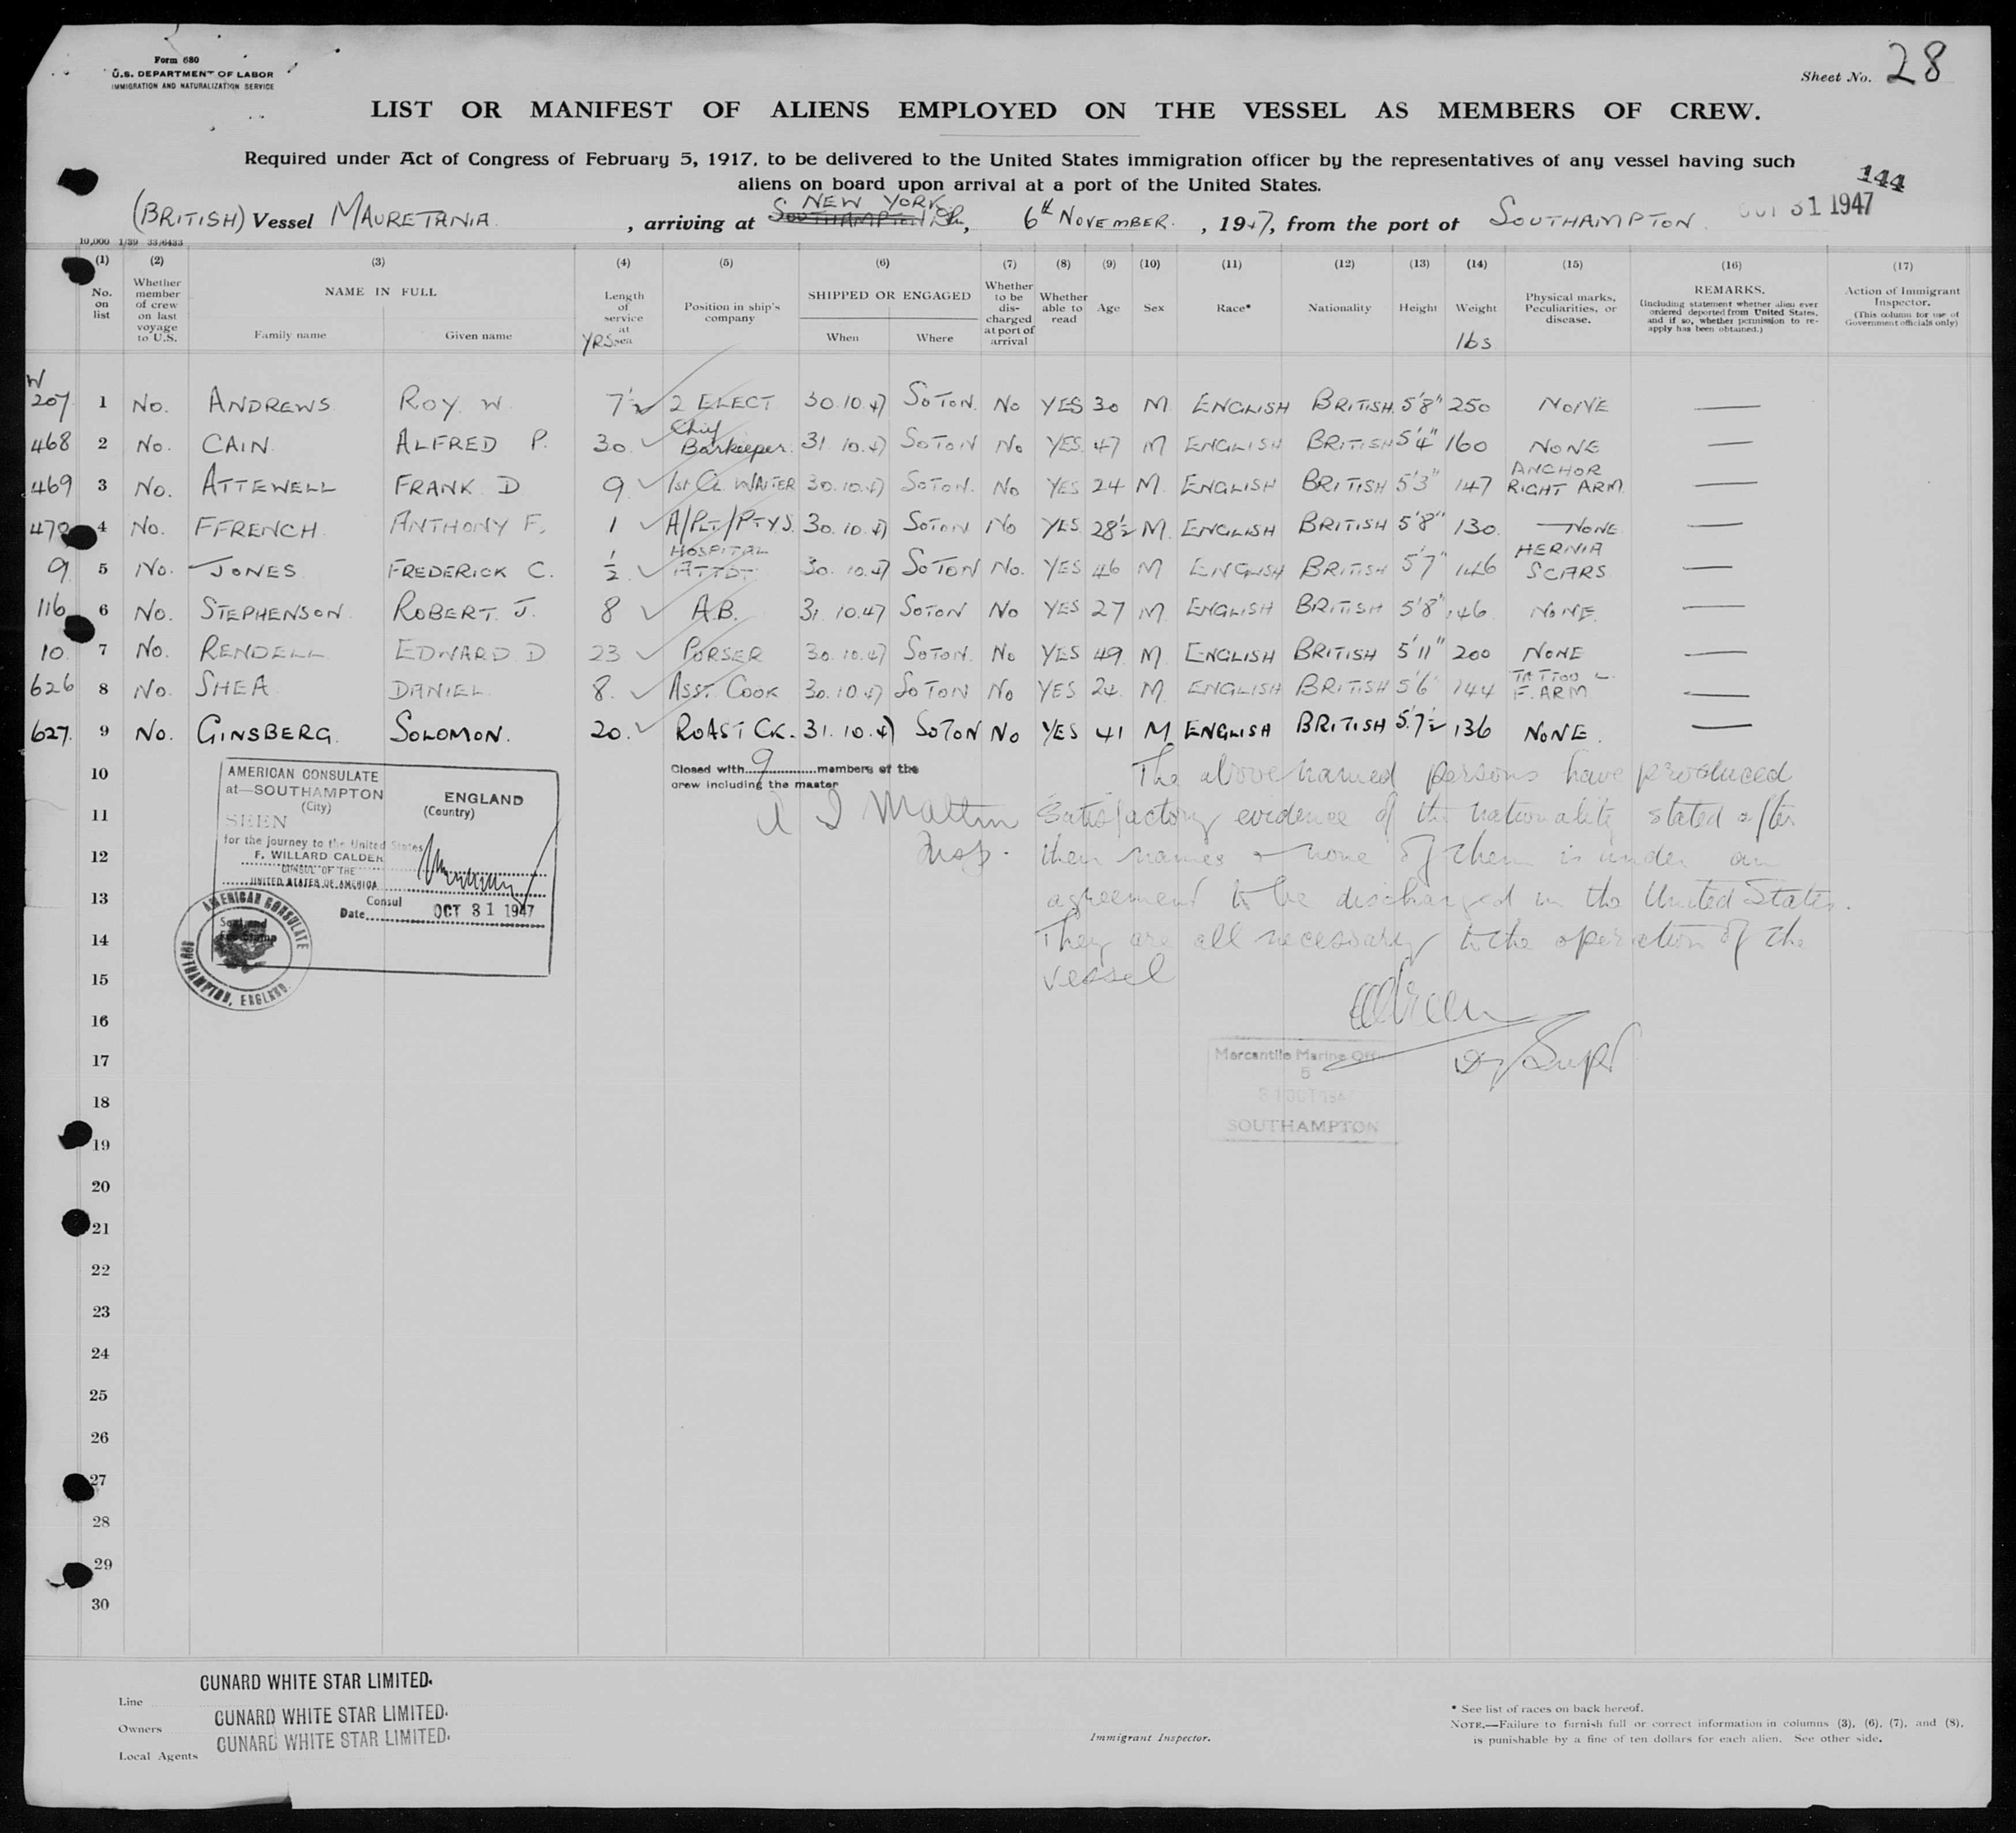 Form 680
U.S. DEPARTMENT OF LABOR
IMMIGRATION AND NATURALIZATION SERVICE
Sheet No. 28
LIST OR MANIFEST OF ALIENS EMPLOYED ON THE VESSEL AS MEMBERS OF CREW.
Required under Act of Congress of February 5, 1917, to be delivered to the United States immigration officer by the representatives of any vessel having such
aliens on board upon arrival at a port of the United States.
144
NEW YORK
(BRITISH) Vessel MAURETANIA , arriving at SOUTHAMPTON, 6th NOVEMBER. , 1947, from the port of SOUTHAMPTON OCT 31 1947
10,000 1/39 33/6433
(1) (2) (3) (4) (5) (6) (7) (8) (9) (10) (11) (12) (13) (14) (15) (16) (17)
No. on list
Whether member of crew on last voyage to U.S.
NAME IN FULL
Family name Given name
Length of service at sea YRS
Position in ship's company
SHIPPED OR ENGAGED
When Where
Whether to be discharged at port of arrival
Whether able to read
Age
Sex
Race*
Nationality
Height
Weight lbs
Physical marks, Peculiarities, or disease.
REMARKS.
(Including statement whether alien ever ordered deported from United States, and if so, whether permission to re-apply has been obtained.)
Action of Immigrant Inspector.
(This column for use of Government officials only)
W
207 1 No. ANDREWS ROY W 7½ 2 ELECT 30.10.47 SOTON. No YES 30 M ENGLISH BRITISH 5'8" 250 NONE —
468 2 No. CAIN ALFRED P. 30 Chief Barkeeper. 31.10.47 SOTON No YES 47 M ENGLISH BRITISH 5'4" 160 NONE —
469 3 No. ATTEWELL FRANK D 9 1st Cl. WAITER 30.10.47 SOTON. No YES 24 M. ENGLISH BRITISH 5'3" 147 ANCHOR RIGHT ARM —
4 No. FFRENCH ANTHONY F. 1 A/PLT/PTYS. 30.10.47 SOTON No YES 28½ M. ENGLISH BRITISH 5'8" 130. NONE —
9 5 No. JONES FREDERICK C. ½ HOSPITAL ATTDT 30.10.47 SOTON No. YES 46 M ENGLISH BRITISH 5'7" 146 HERNIA SCARS —
116 6 No. STEPHENSON ROBERT J. 8 A.B. 31.10.47 SOTON No YES 27 M. ENGLISH BRITISH 5'8" 146 NONE —
10 7 No. RENDELL EDWARD D 23 PURSER 30.10.47 SOTON. No YES 49 M. ENGLISH BRITISH 5'11" 200 NONE —
626 8 No. SHEA DANIEL 8. ASST. COOK 30.10.47 SOTON No YES 24. M. ENGLISH BRITISH 5'6" 144 TATTOO L. F. ARM —
627. 9 No. GINSBERG. SOLOMON. 20. ROAST CK. 31.10.47 SOTON No YES 41 M ENGLISH BRITISH 5.7½ 136 NONE. —
10
11
12
13
14
15
16
17
18
19
20
21
22
23
24
25
26
27
28
29
30
Closed with 9 members of the
crew including the master
Insp.
The above named persons have produced
satisfactory evidence of the nationality stated after
their names & none of them is under an
agreement to be discharged in the United States.
They are all necessary to the operation of the
vessel
Dy Supt
AMERICAN CONSULATE
at—SOUTHAMPTON ENGLAND
(City) (Country)
SEEN
for the journey to the United States
F. WILLARD CALDER
CONSUL OF THE
UNITED STATES OF AMERICA
Consul
Date OCT 31 1947
AMERICAN CONSULATE
SOUTHAMPTON, ENGLAND.
Seal and
Fee Stamp
Mercantile Marine Off
5
31 OCT 194
SOUTHAMPTON
Line CUNARD WHITE STAR LIMITED.
Owners CUNARD WHITE STAR LIMITED.
Local Agents CUNARD WHITE STAR LIMITED.
Immigrant Inspector.
* See list of races on back hereof.
NOTE.—Failure to furnish full or correct information in columns (3), (6), (7), and (8),
is punishable by a fine of ten dollars for each alien. See other side.